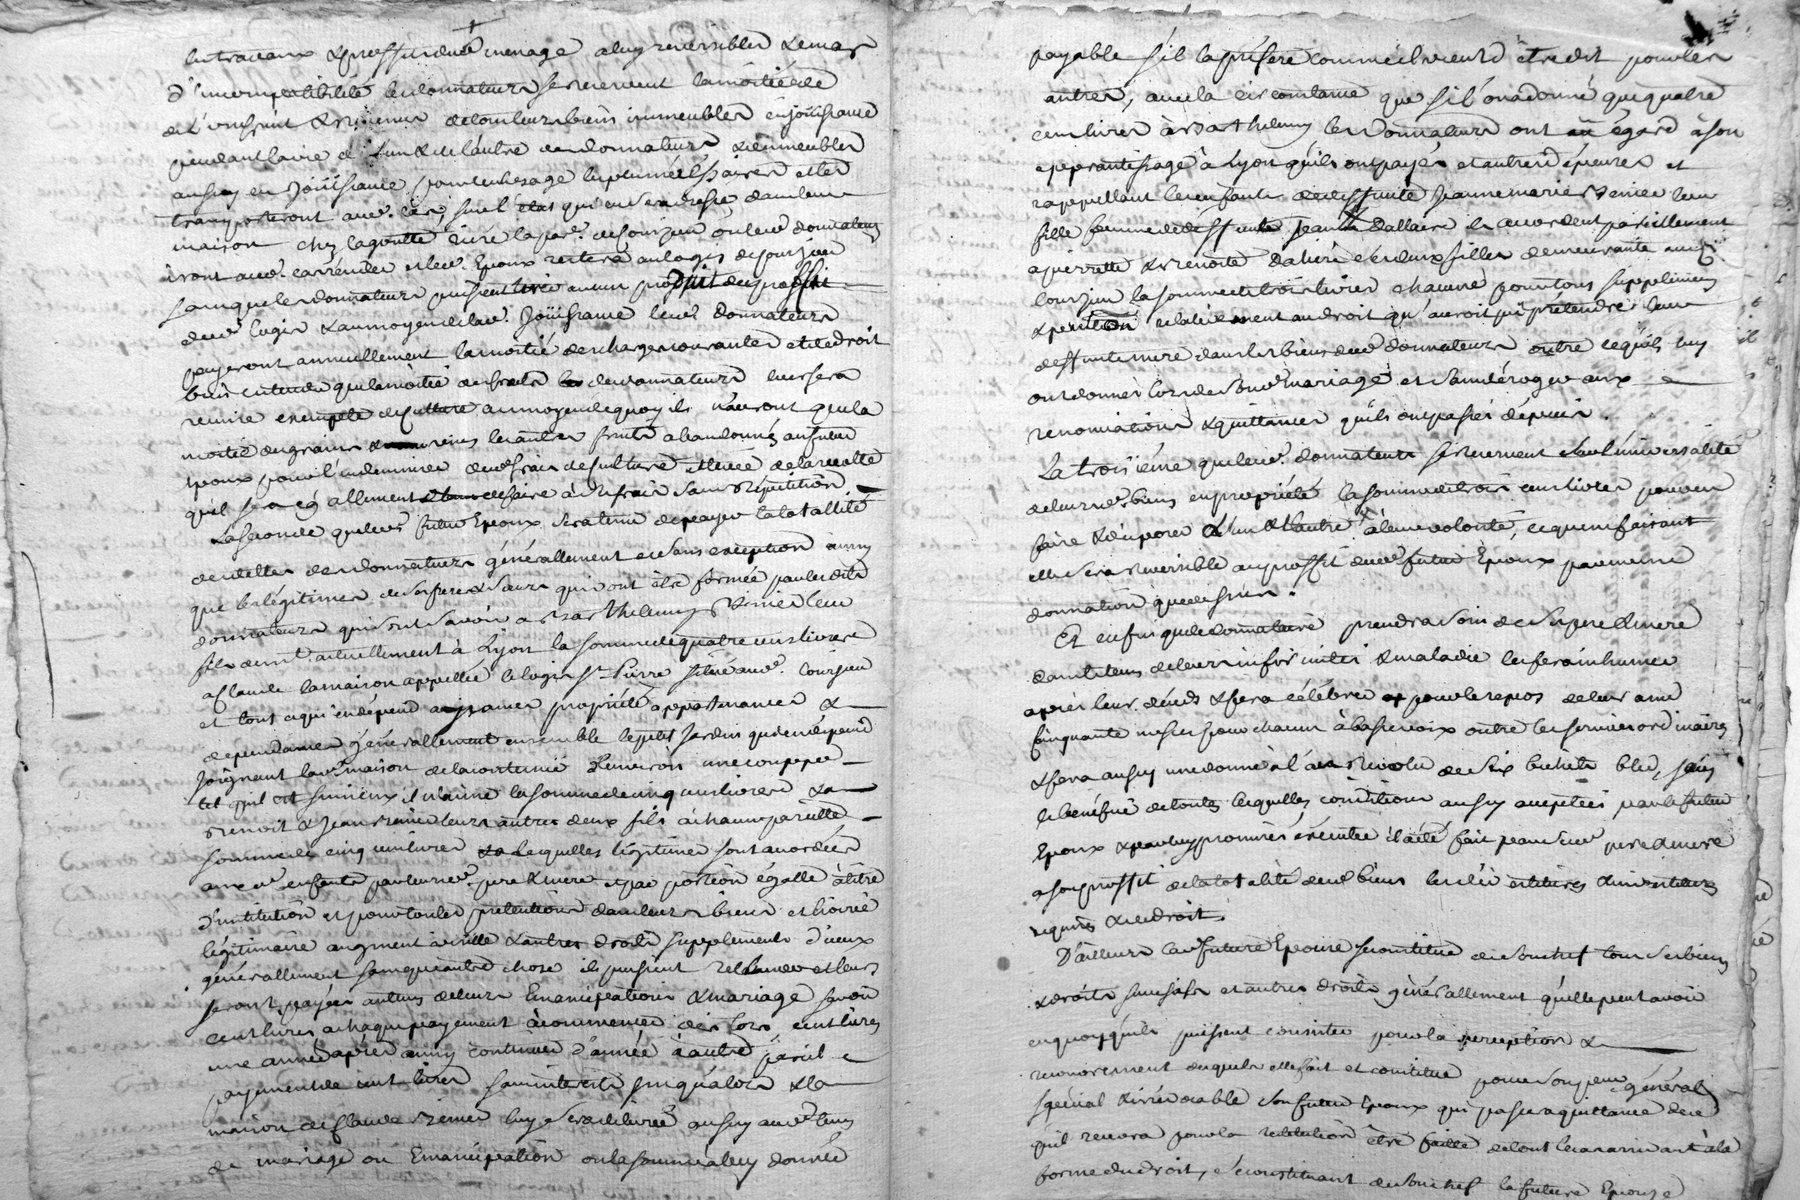 les travaux & proffit dudt menage a luy reversibles & en cas
d'incompatibilité les donnateurs se reservent la moitié de
de l'usufruit & revenus de tous leurs biens immeubles en joüissance
pendant la vie de l'un & de l'autre des donnateurs & des meubles
aussy en joüissance pour leur usage les plus nécéssaires et les
transporteront avec eux, sur l'etat qui en sera dressé dans leur
maison chez lagoutte riere la par. de Courzieu ou led donnateurs
iront avec. resider et led. Epoux restera au logis de Courzieu
sans que les donnateurs puissent tirer aucun proffit des proffit
dudt logis & au moyen de lad. Joüissance led donnateurs
payeront annuellement la moitié des charges courantes et de droit
bien entendu que la moitié des fruits des donnateurs leur sera
remise exempte de culture au moyen de quoy ils n'auront que la
moitié des grains & vins les autres fruits abandonnés au futur
Epoux pour l'indemniser desd frais de culture et levée de la recolte
qu'il sera égallement de faire à ses frais sans répétition
La seconde que led futur Epoux sera tenu de payer la totallité
des dettes des donnateurs générallement et sans exception ainsy
que les légitimes de ses freres & soeurs qui ont été formée par lesdits
donnateurs qui sont savoir a Barthelemy Venier leur
fils demt. actuellement à Lyon la somme de quatre cens livres
a Claude la maison appellée le logis St. Pierre située aud. Courzieu
et tout ce qui en dépend aisances propriété appartenances &
dependances générallement ensemble le petit Jardin qui en dépend
joignant lad maison de la contenue d'environ une coupée
tel qu'il est si mieux il n'aime la somme de cinq cens livres & a
Benoit & Jean Venier leurs autres deux fils à chacun pareille
somme de cinq cens livres lesquelles légitimes sont accordées
auxd enfants par leursd. pere & mere et par portion égalle à titre
d'institution et pour toutes prétentions dans leurs biens et hoirie
légitimaire augment à vielle & autres droits supplements d'yeux
générallement sans que autre chose ils puissent reclamer et leurs
seront payées au tems de leurs Emancipation & mariage savoir
cent livres a chaque payement à commencer dès lors, cent livres
une année après ainsy continuer d'année à autre pareil
payement de cent livres sans interets jusqu'alors & la
maison de Claude Venier luy sera delivrée aussy aud tems
de mariage ou Emancipation ou la somme a luy donnée
payable s'il la préfère comme il vient d'etre dit pour les
autres, avec la circonstance que s'il n'a donné que quatre
cens livres à Barthelemy les donnateurs ont eu égard à son
apprantissage à Lyon qu'ils ont payés et autres dépenses et
rappellant les enfants de deffunte Jeanne marie Venier leur
fille femme de deffunt Jean Dallaire ils accordent pareillement
a pierrette & Benoite Daliere ses deux filles demeurante aud
Courzieu la somme de trois livres chacune pour tous supplement
& portion relativement au droit qu'auroit pu prétendre leur
deffunte mere dans les biens desd donnateurs outre ce qu'ils luy
ont donnés lors de son mariage et sans déroger aux
renonciations & quittances qu'ils ont passés depuis.
La troisiéme que led. donnateurs se reservent sur l'universalité
de leursd. biens en propriété la somme de trois cens livres pour en
faire & disposer l'un & l'autre à leur volonté, ce que ne faisant
elle sera reversible au proffit dud futur Epoux par même
donnation que dessus.
Et enfin que le donnataire prendra soin de ses pere & mere
dans le tems de leurs infirmités & maladie les fera inhumer
après leur décès & fera célébrer pour le repos de leur ame
cinquante messes pour chacun à basse voix outre les services ordinaires
& fera aussy une donne à l'an revolu de six bichets bled, sous
le bénéfice de toutes lesquelles conditions aussy acceptées par le futur
Epoux & par luy promises éxécuter il a été fait par sesd pere & mere
a son proffit de la totalité desd biens les clés vetitures & investitures
requises & de droit.
D'ailleurs lad future Epouse se constitue de son chef tous ses biens
& droits successifs et autres droits générallement qu'elle peut avoir
en quoy qu'ils puissent consister pour la perception &
recouvrement desquels elle fait et constitue pour son procur général
spécial & irrévocable son futur Epoux qui passera quittance de ce
qu'il recevra pour la restitution être faitte de tout le cas arrivant à la
forme du droit, se constituant de son chef la future Epouse